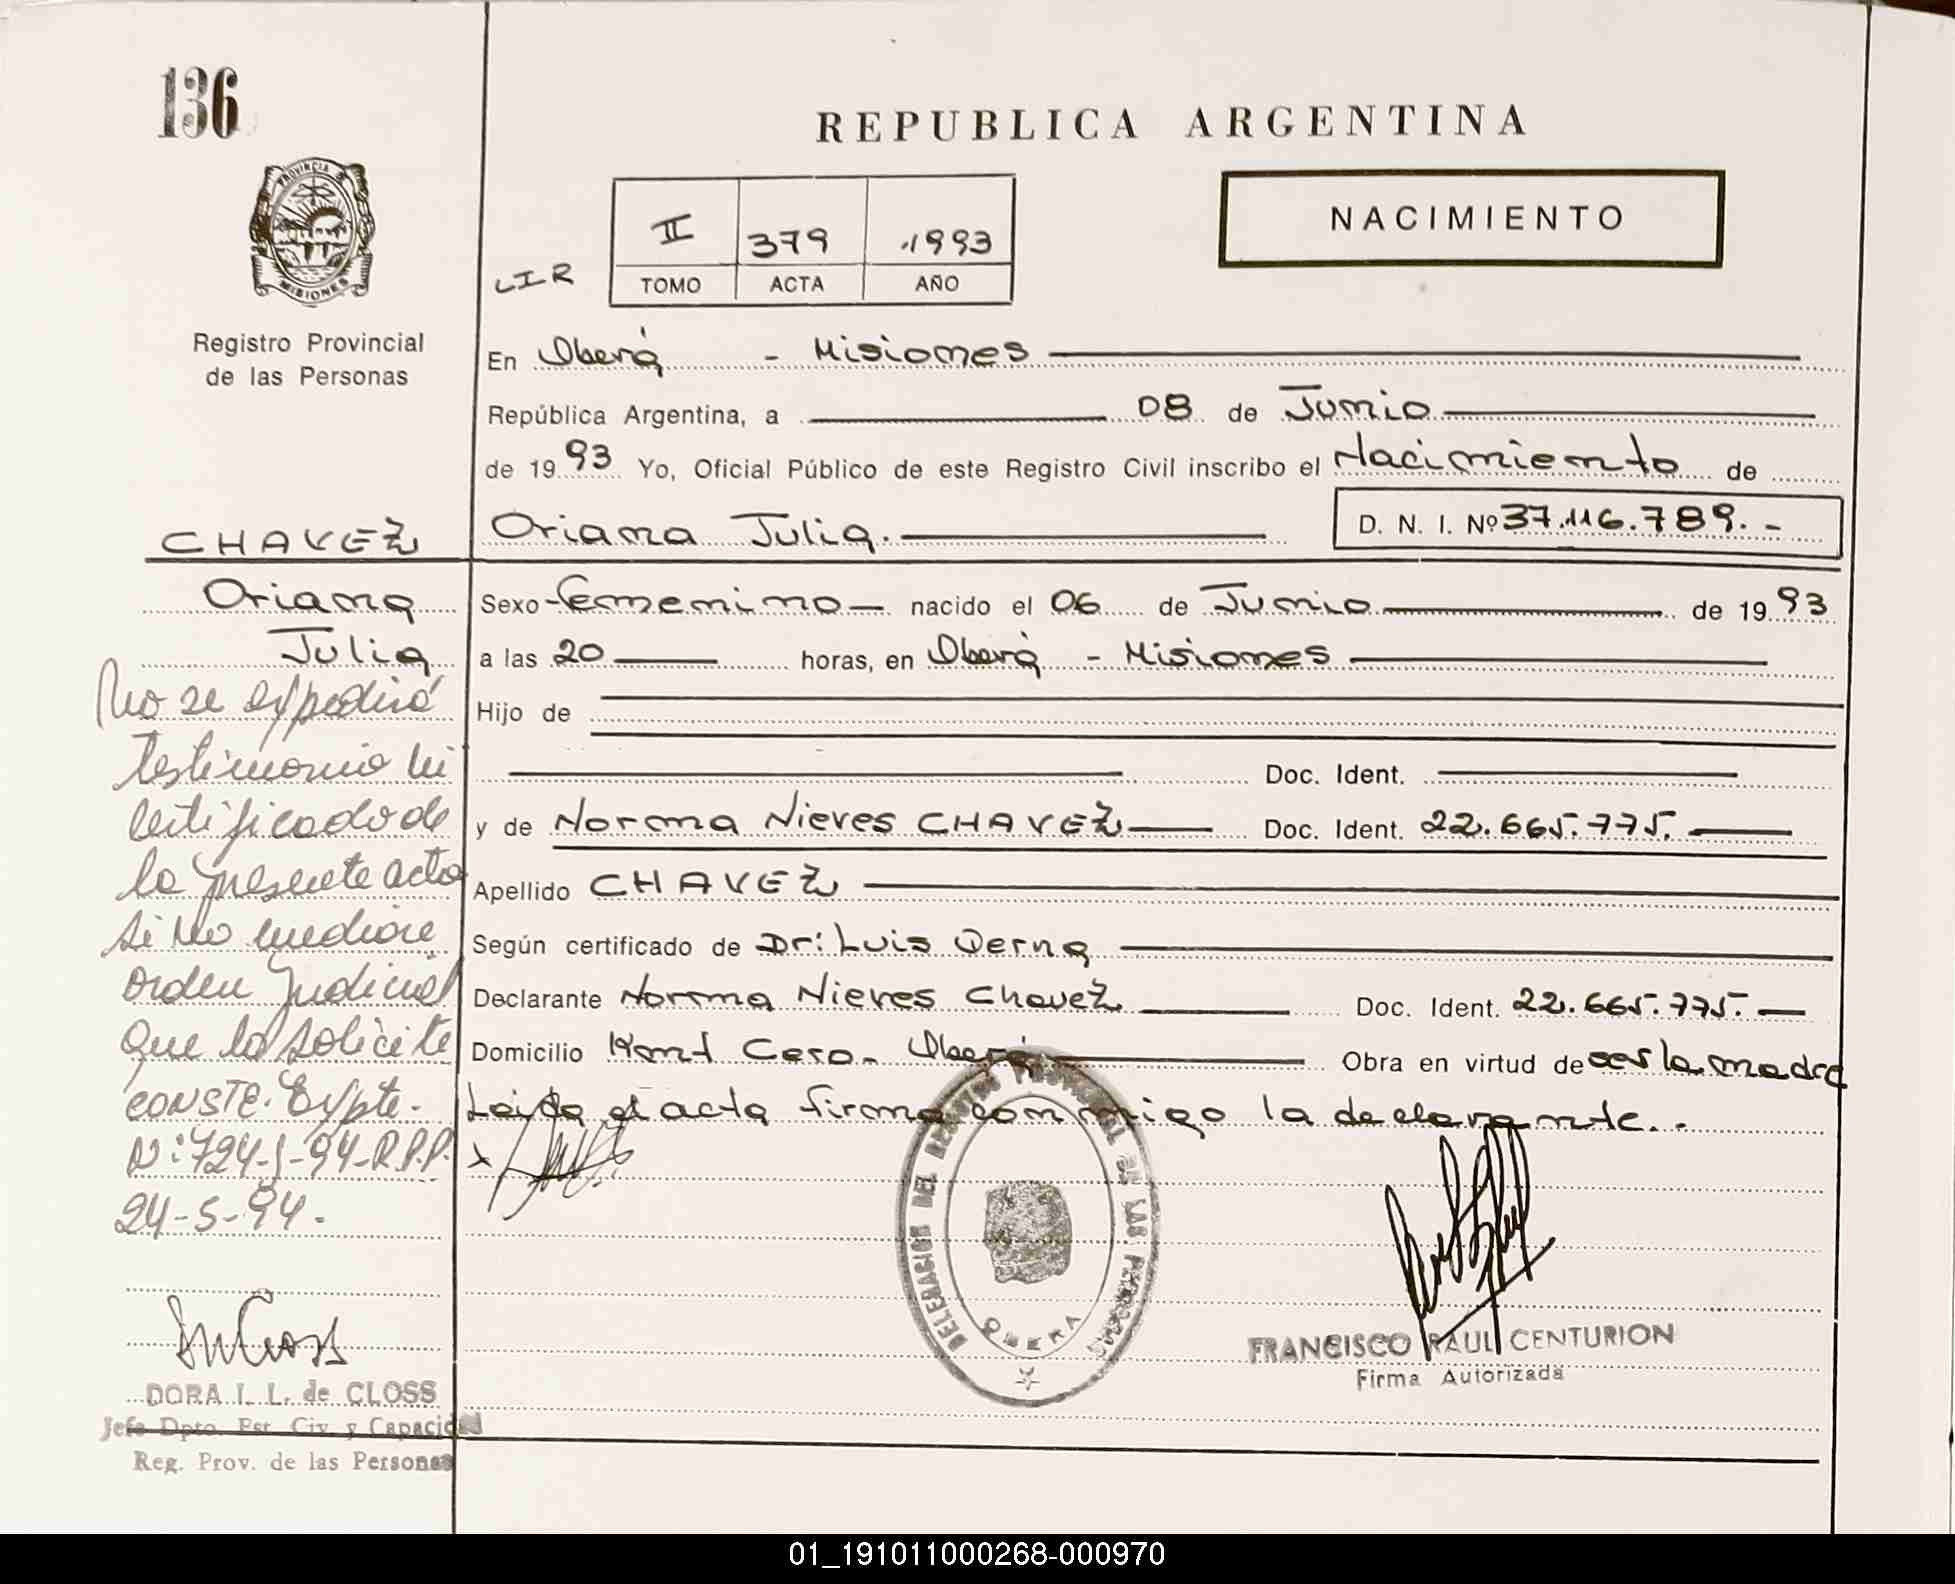 136
REPUBLICA ARGENTINA
NACIMIENTO
PROVINCIA DE
MISIONES
Registro Provincial
de las Personas
LIR
II 379 1993
TOMO ACTA AÑO
En Oberá - Misiones
República Argentina, a 08 de Junio
de 1993 Yo, Oficial Público de este Registro Civil inscribo el Nacimiento de
Oriana Julia. D. N. I. Nº 37.116.789.-
CHAVEZ
Oriana
Julia
Sexo Femenino nacido el 06 de Junio de 1993
a las 20 horas, en Oberá - Misiones
Hijo de
Doc. Ident.
y de Norma Nieves CHAVEZ Doc. Ident. 22.665.775.
Apellido CHAVEZ
Según certificado de Dr: Luis
Declarante Norma Nieves Chavez Doc. Ident. 22.665.775.
Domicilio Oberá Obra en virtud de ser la madre
Leida el acta firma conmigo la declarante.-
x
No se expedirá
testimonio ni
certificado de
la presente acta
si no mediare
orden Judicial
que lo solicite
CONSTE. Expte.
Nº: 724-J-94-R.P.P.
24-5-94.
DORA I. L. de CLOSS
Jefe Dpto. Est. Civ. y Capacidad
Reg. Prov. de las Personas
DELEGACION DEL REGISTRO PROVINCIAL DE LAS PERSONAS
OBERA
FRANCISCO RAUL CENTURION
Firma Autorizada
01_191011000268-000970